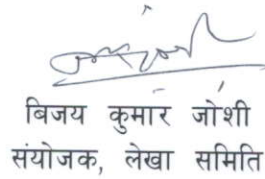 बिजय कुमार जोशी
संयोजक, लेखा समिति